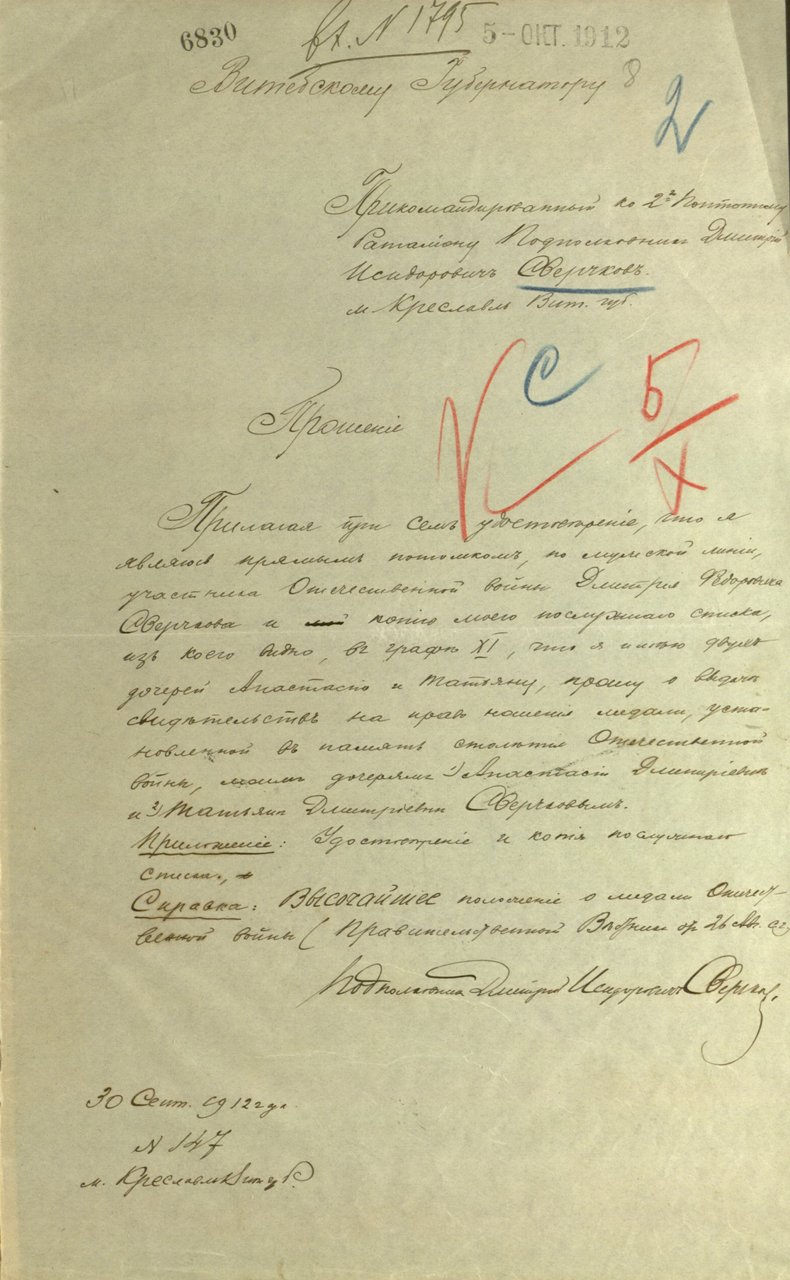 6830 вх. N 1795 5 - ОКТ. 1912
Витебскому Губернатору 8
2
Прикомандированный ко 2му Понтонному
Баталіону Подполковникъ Дмитрій
Исидоровичъ Сверчковъ.
м. Креславль Вит. губ.
С 5/X
Прошеніе
Прилагая при семъ удостовѣреніе, что я
являюсь прямымъ потомкомъ, по мужской линіи,
участника Отечественной войны Дмитрія Федоровича
Сверчкова и копію моего послужнаго списка,
изъ коего видно, въ графѣ XI, что я имѣю двухъ
дочерей Анастасію и Татьяну, прошу о выдачѣ
свидѣтельствъ на право ношенія медали, уста-
новленной въ память столѣтія Отечественной
войны, моимъ дочерямъ 1) Анастасіи Дмитріевнѣ
и 2) Татьянѣ Дмитріевнѣ Сверчковымъ.
Приложеніе: Удостовѣреніе и копія послужнаго
списка,
Справка: Высочайшее положеніе о медали Отечест-
венной войны (Правительственной Вѣстникъ 26 Авг.
Подполковникъ Дмитрій Исидоровичъ Сверчковъ.
30 Сент. 1912 года
N 147
м. Креславль Вит. губ.